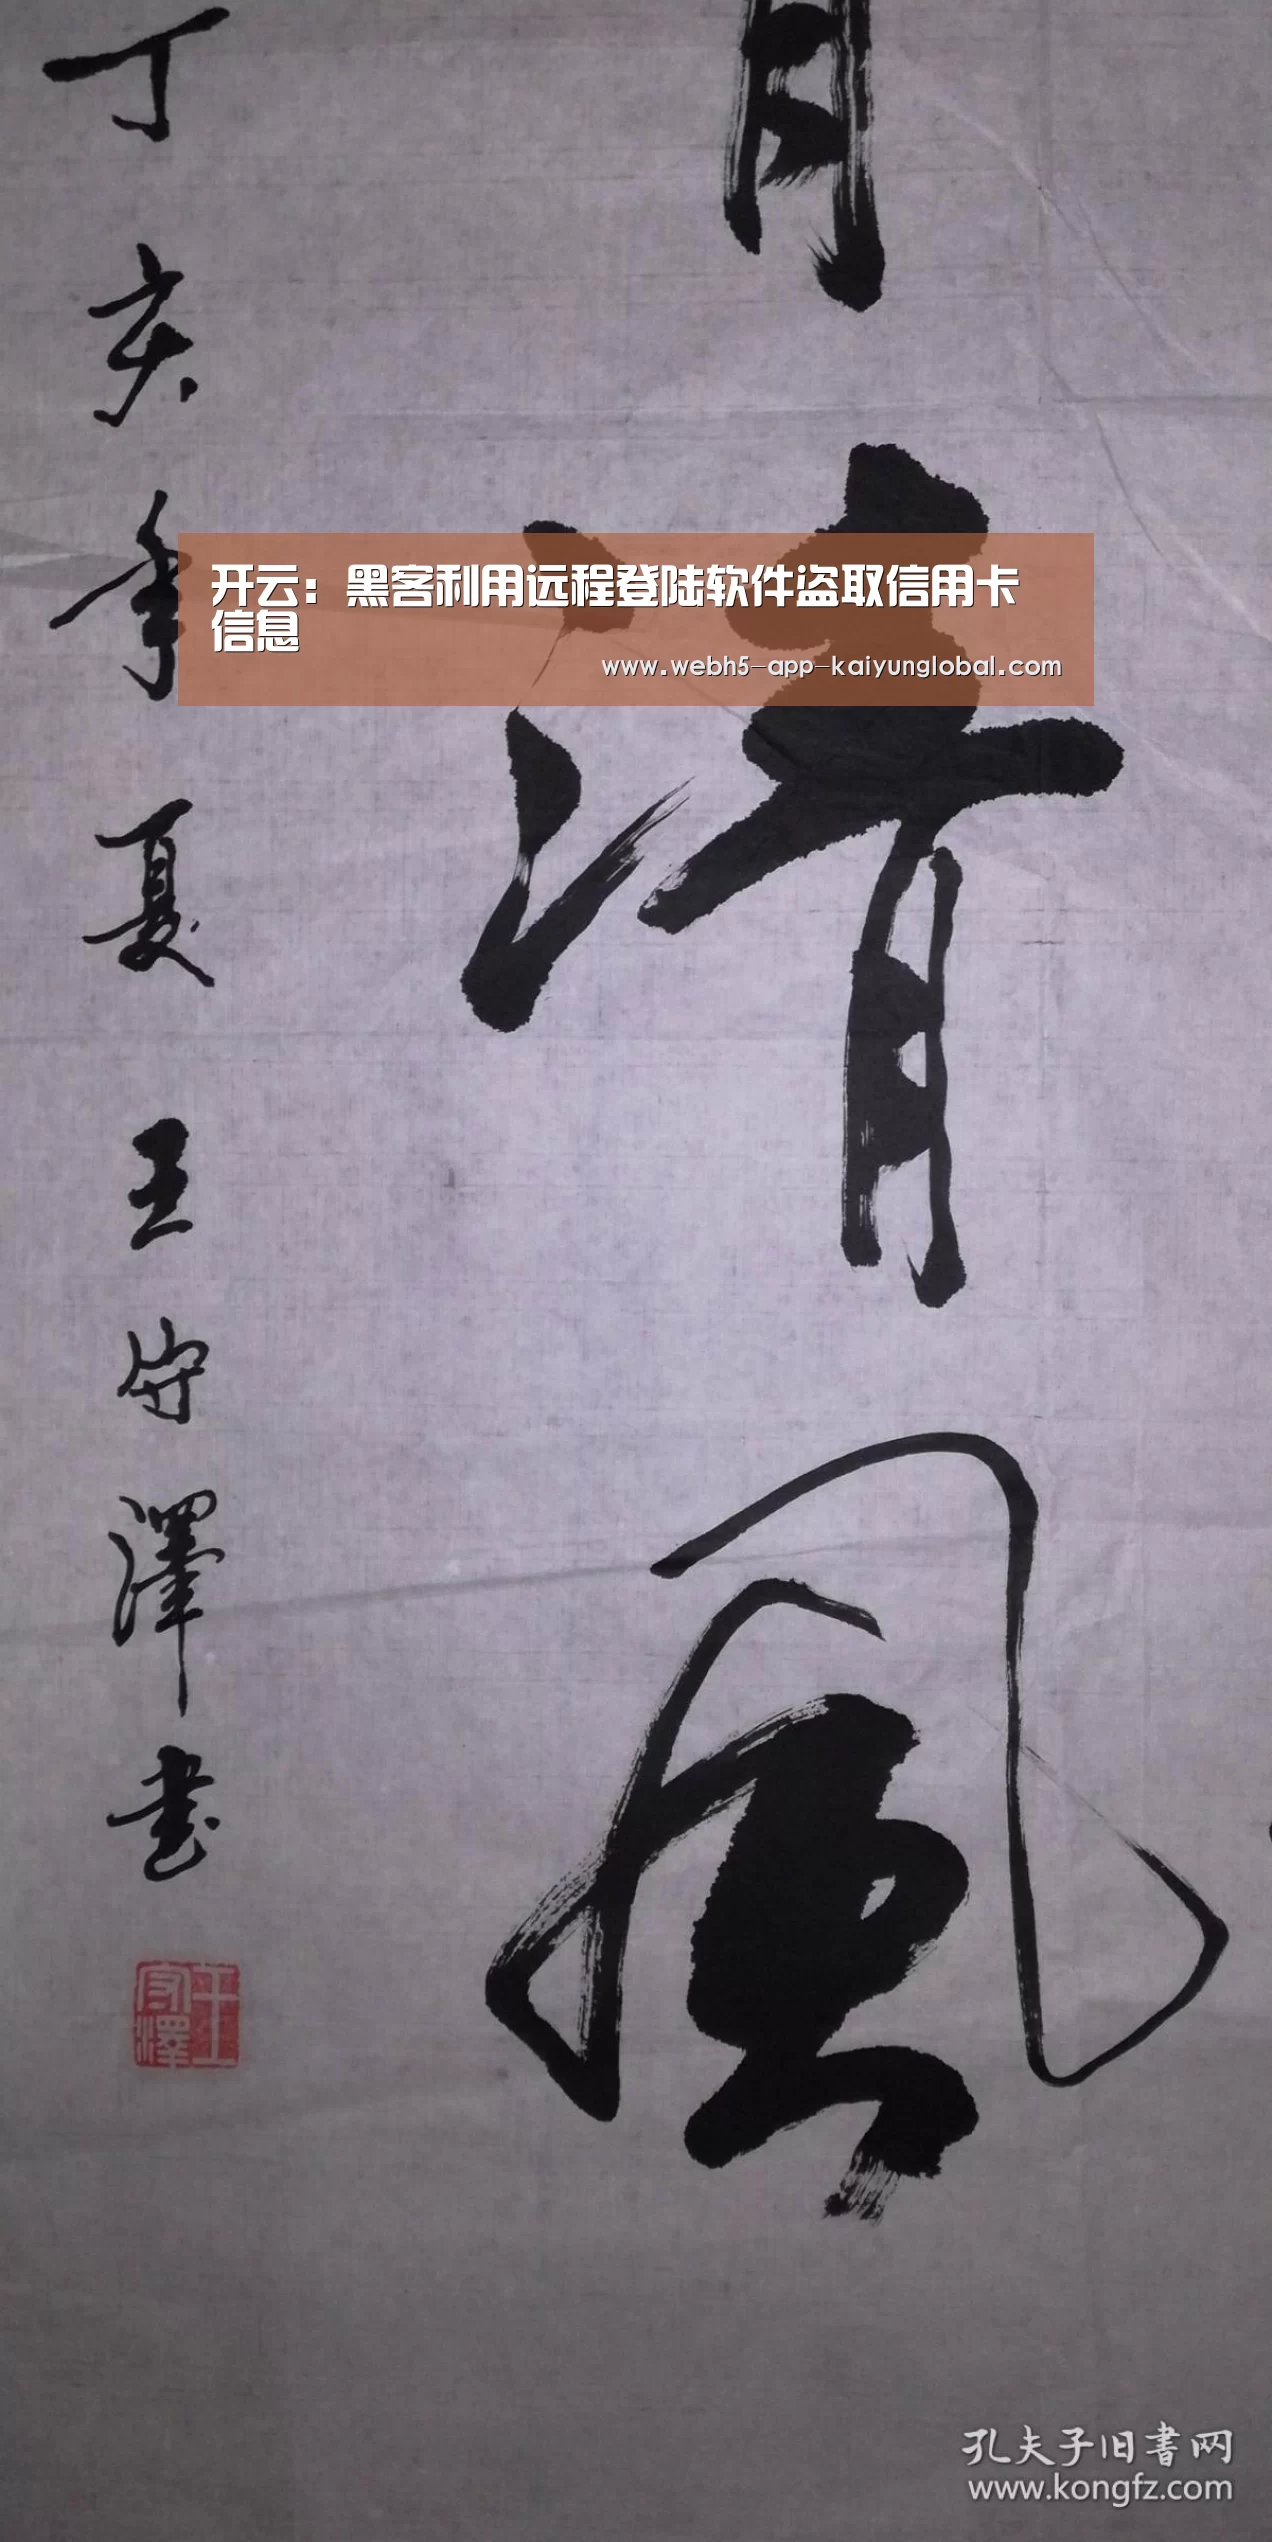 月
清
风
丁亥年夏王守澤书
王守澤
开云：黑客利用远程登陆软件盗取信用卡
信息
www.webh5-app-kaiyunglobal.com
孔夫子旧书网
www.kongfz.com